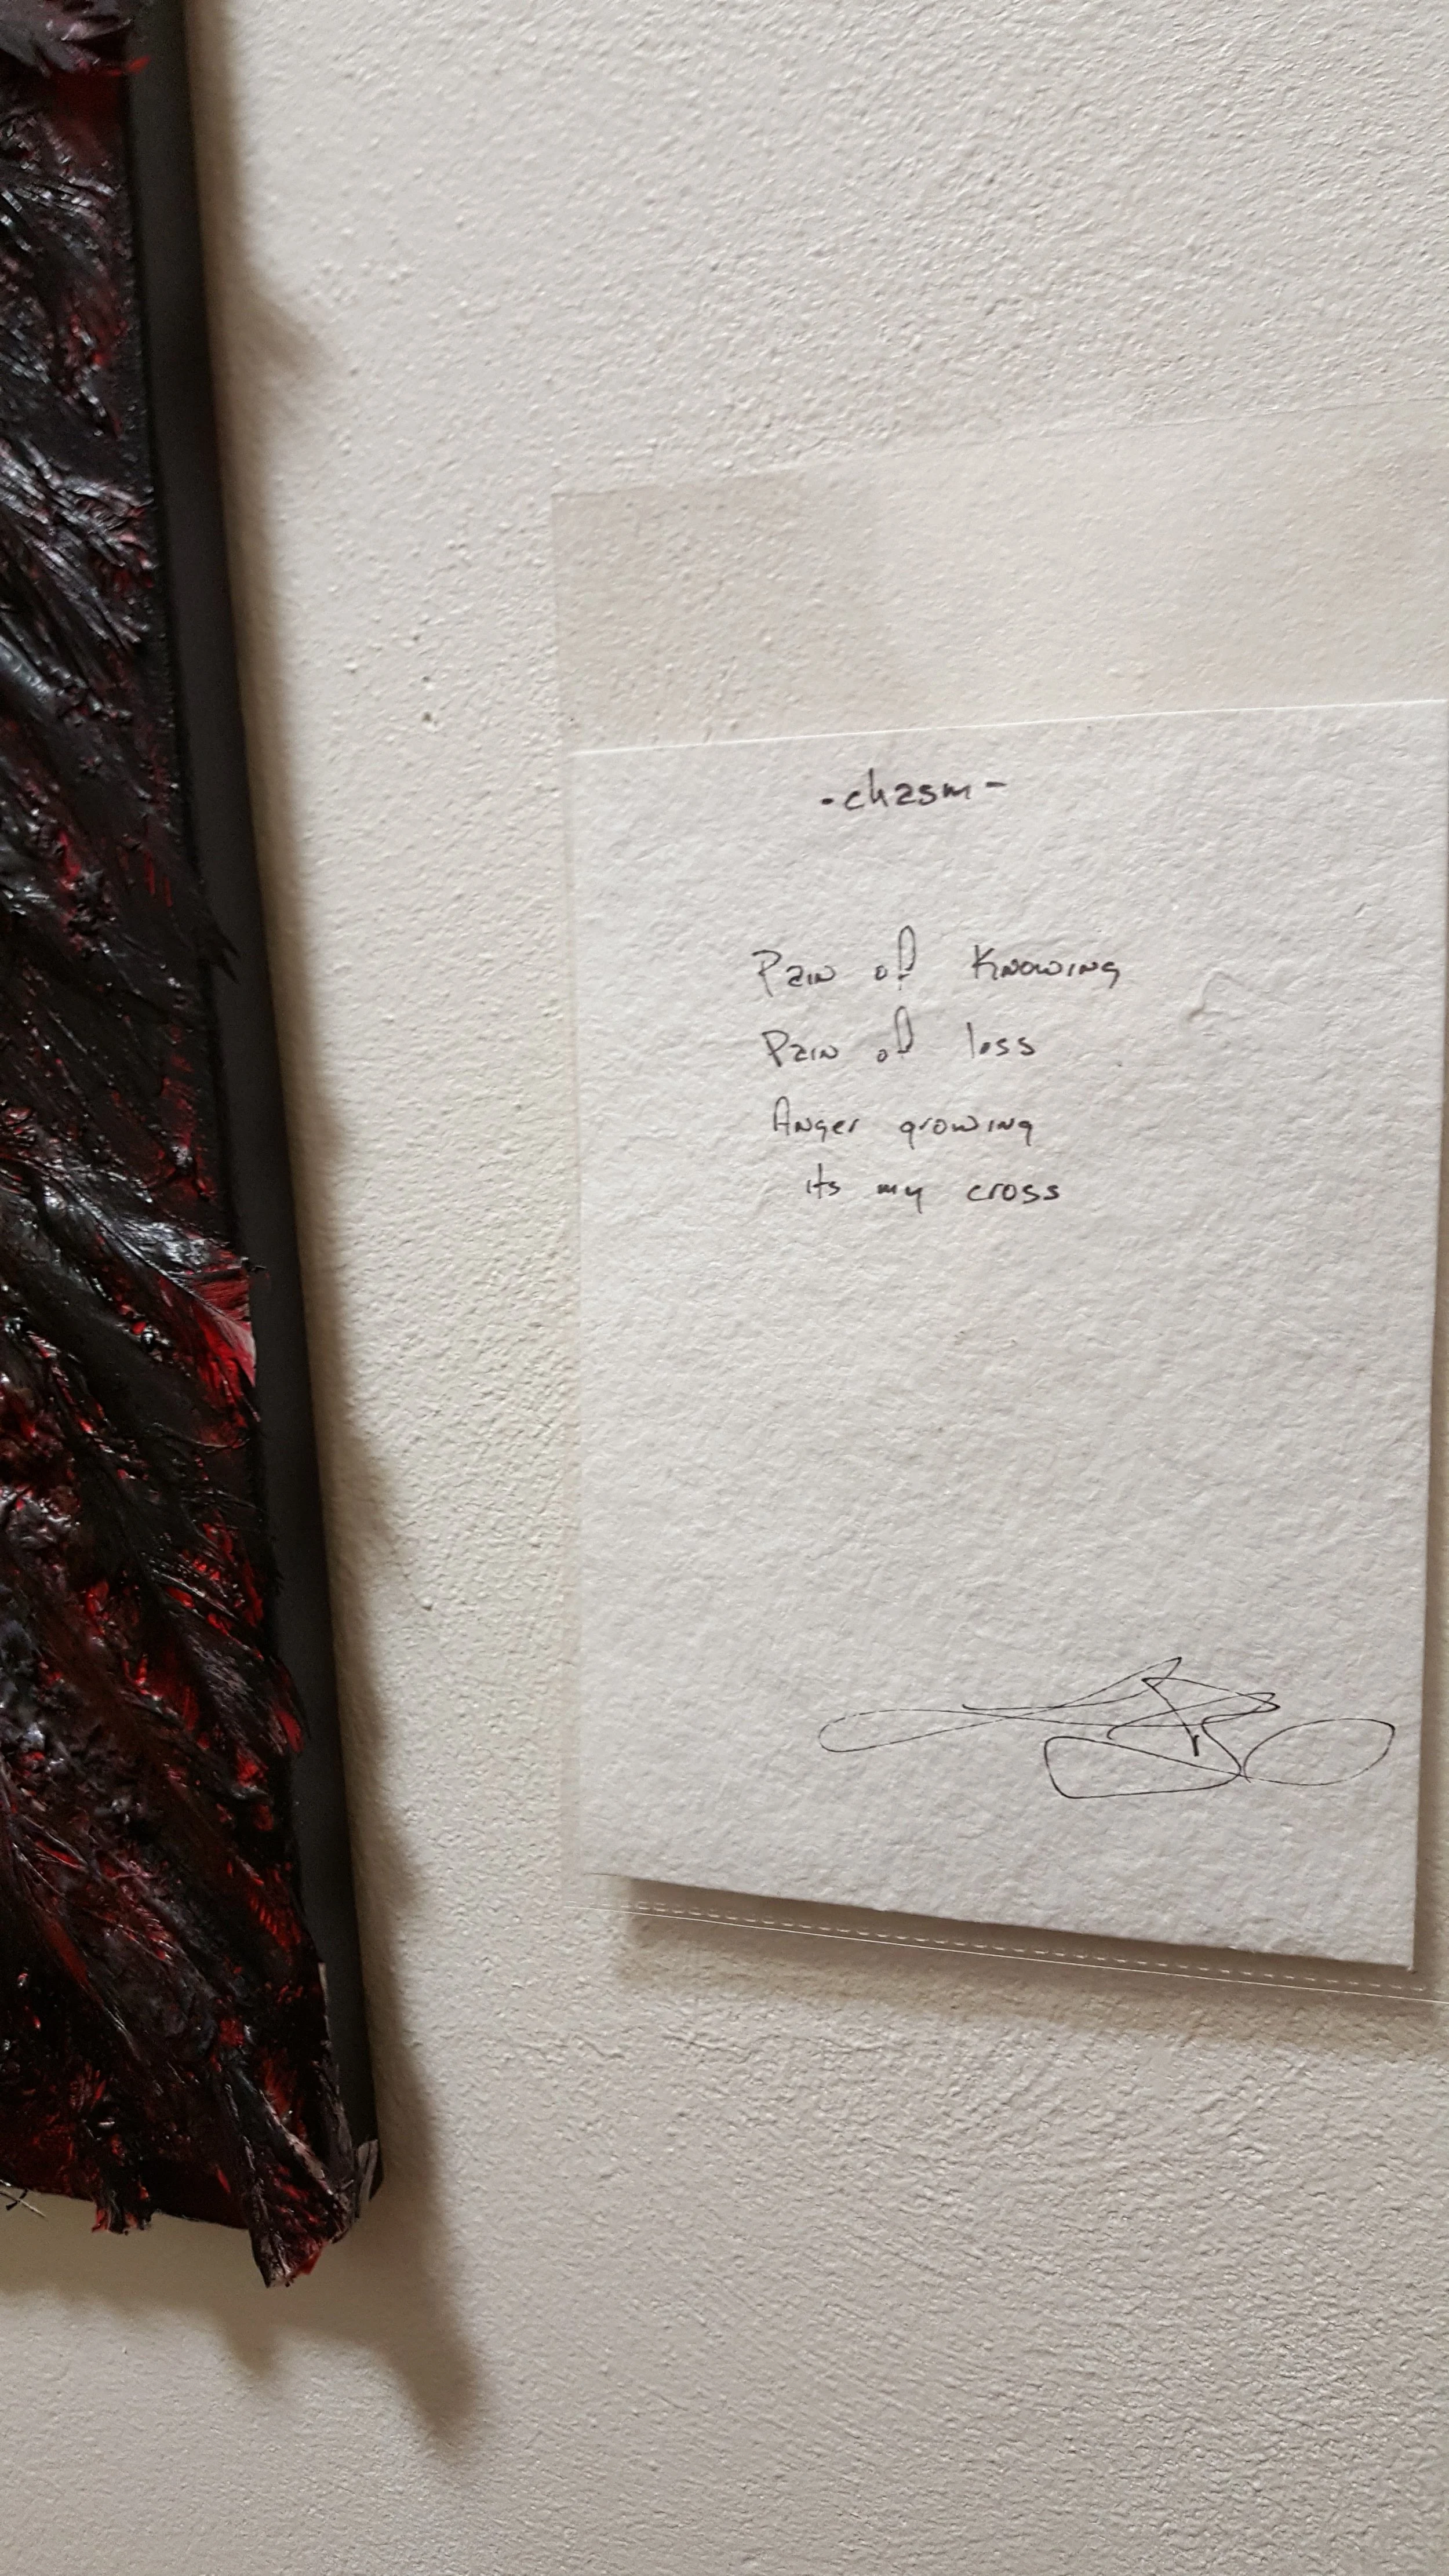 -chasm-
Pain of Knowing
Pain of loss
Anger growing
its my cross